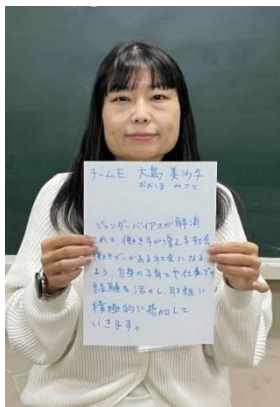 チームE 大島 美沙子
おおしま みさと
ジェンダーバイアスが解消
されて、働き手が増える社会
働きがいがある社会になる
よう、自身の子育てや仕事での
経験を活かし、取組に
積極的に参加して
いきます。